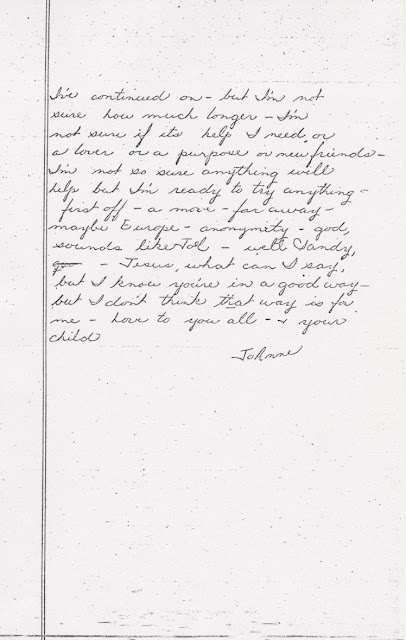 I've continued on - but I'm not
sure how much longer - I'm
not sure if its help I need or
a lover or a purpose or new friends -
I'm not so sure anything will
help but I'm ready to try anything -
first off - a move - far away -
maybe Europe - anonymety - god,
sounds like - well Sandy,
- Jesus, what can I say,
but I know you're in a good way -
but I don't think that way is for
me - love to you all - & your
child
JoAnne